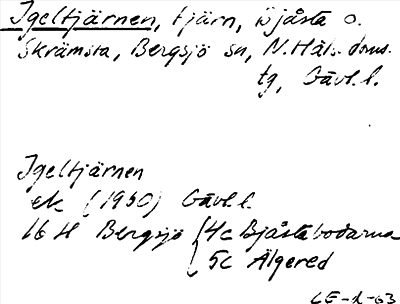 Igeltjärnen, tjärn, Bjåsta o.
Skrämsta, Bergsjö sn, N. Häls. doms.
tg, Gävl. l.
Igeltjärnen
ek (1950) Gävl. l.
16 H Bergsjö 4c Bjåstabodarna
5c Älgered